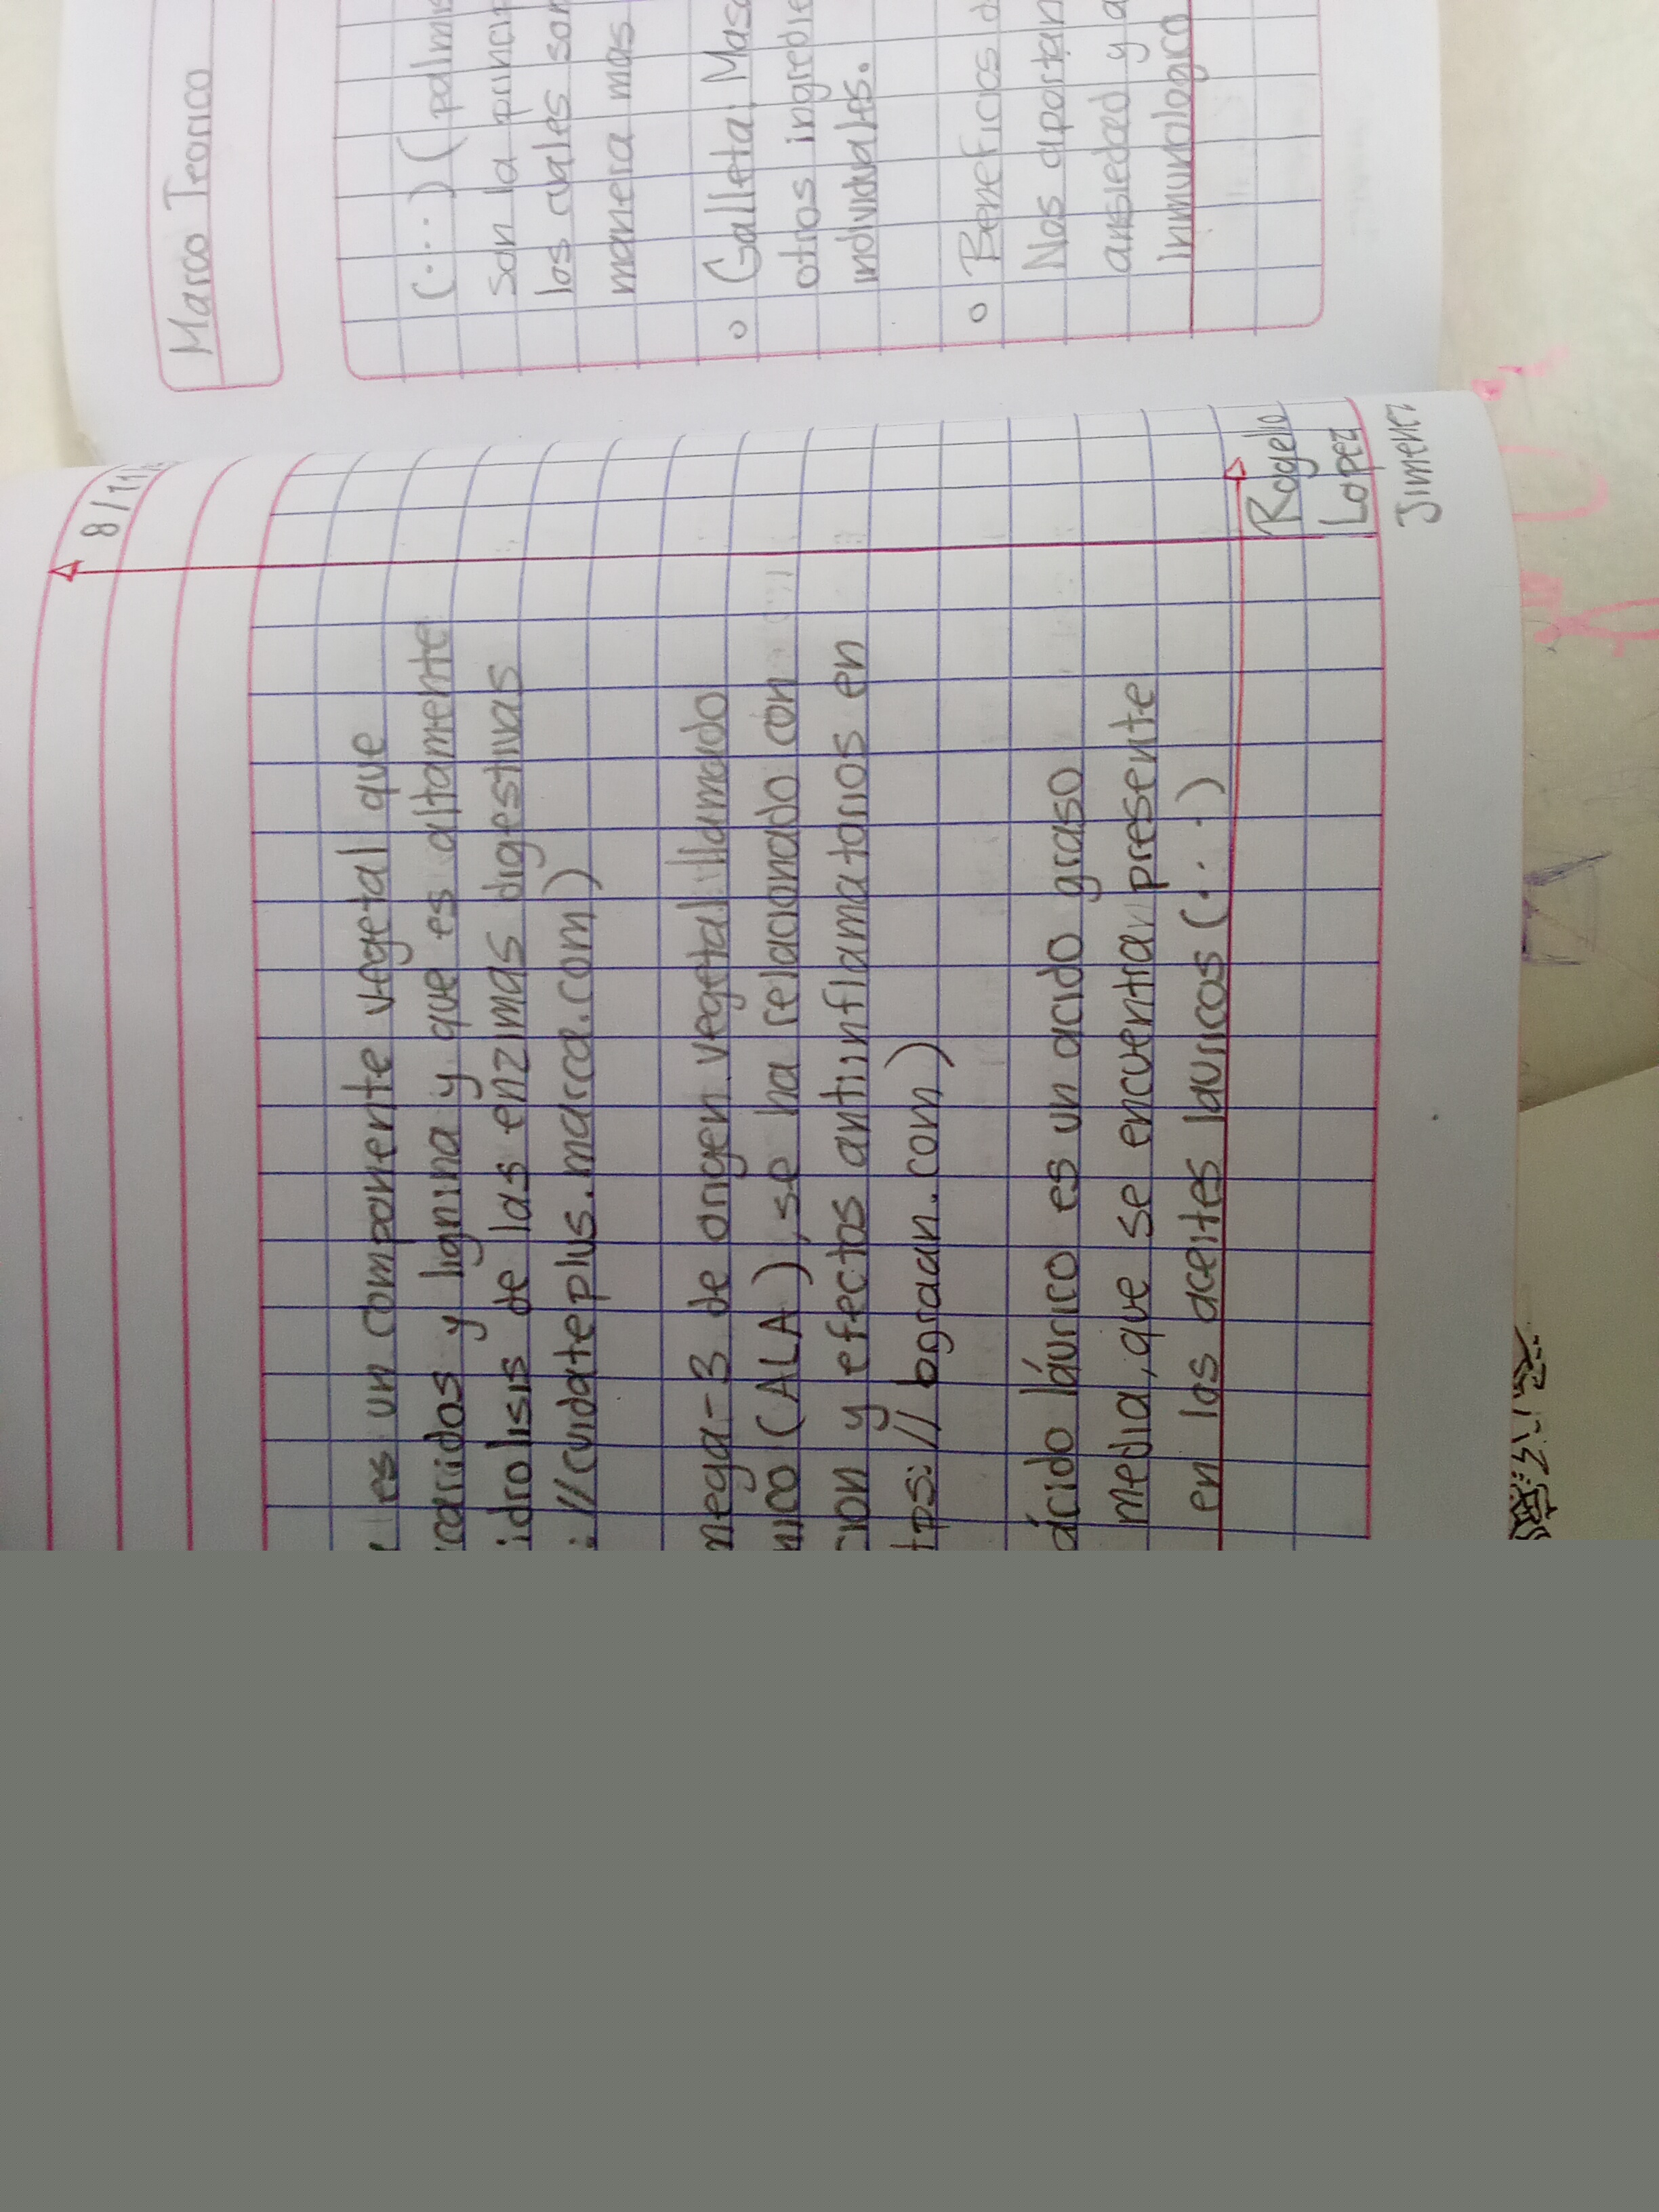 8/11/
es un componente vegetal que
caridos y lignina y que es altamente
idrolisis de las enzimas digestivas
://cuidateplus.marca.com)
mega-3 de origen vegetal llamado
nico (ALA), se ha relacionado con
cion y efectos antiinflamatorios en
tps://bgraan.com)
ácido láurico es un acido graso
media, que se encuentra presente
en los aceites lauricos (...)
Rogelio
Lopez
Jimenez
Marco Teorico
(...) (palmis
son la princip
los cuales son
manera mas
o Galleta: Masa
otros ingredie
individuales.
o Beneficios d
Nos aportan
ansiedad y a
Inmunologico